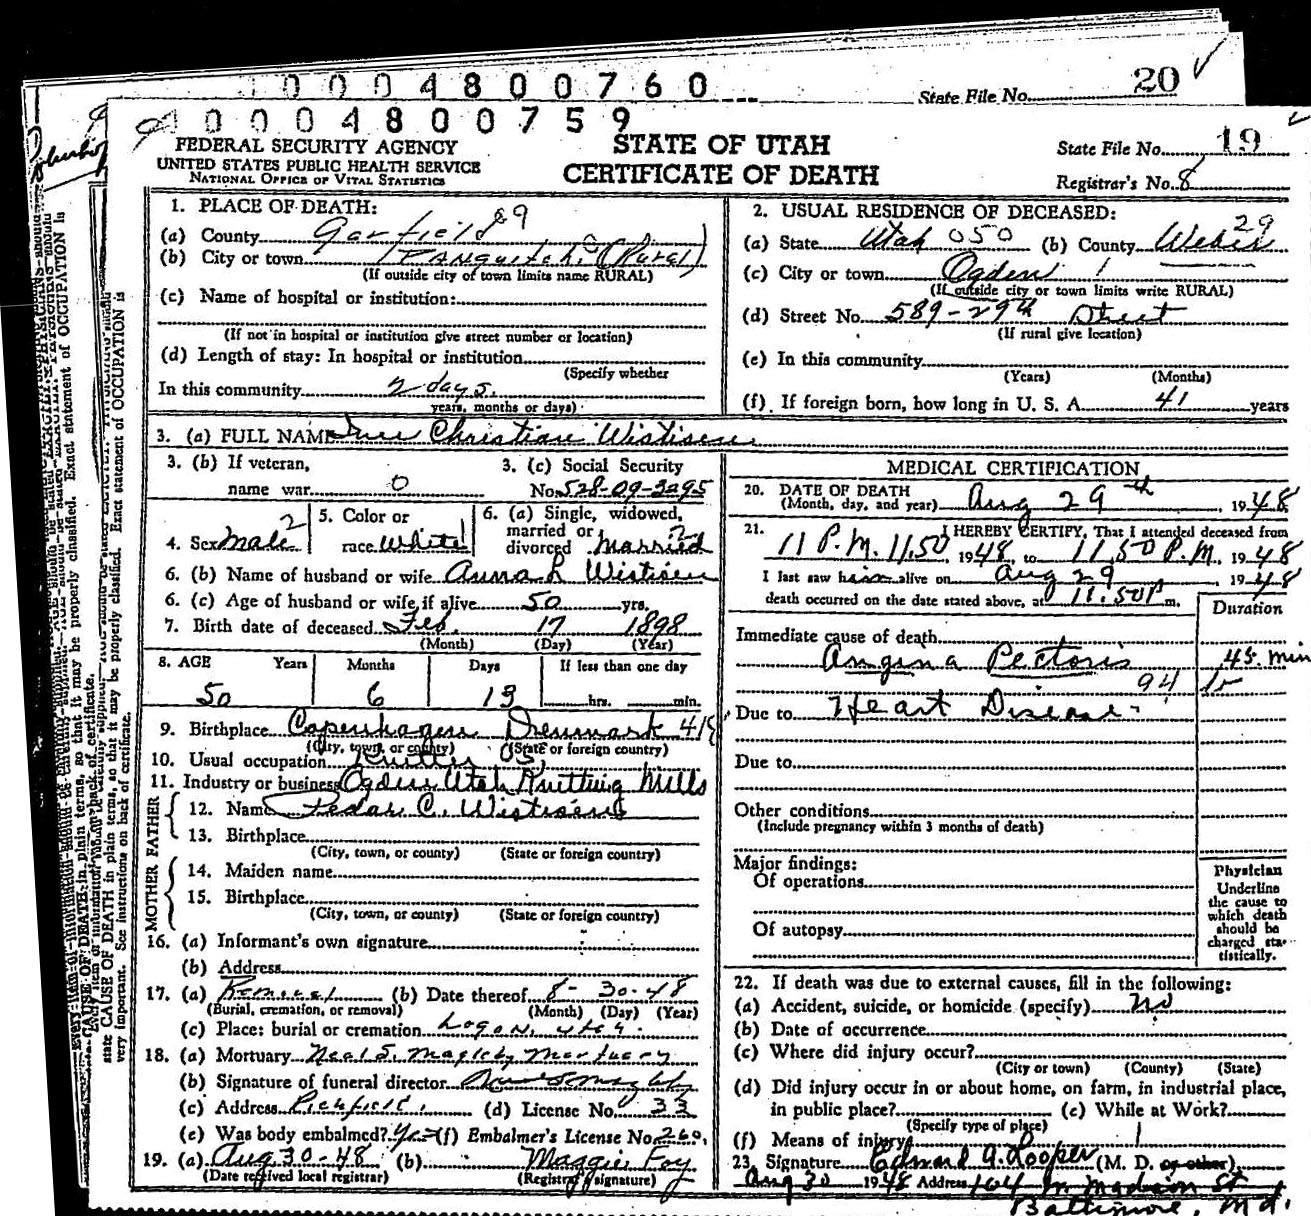 0004800760
State File No. 20
0004800759
FEDERAL SECURITY AGENCY
UNITED STATES PUBLIC HEALTH SERVICE
NATIONAL OFFICE OF VITAL STATISTICS
STATE OF UTAH
CERTIFICATE OF DEATH
State File No. 19
Registrar's No. 8
1. PLACE OF DEATH:
(a) County Garfield 29
(b) City or town Panguitch (Rural)
(If outside city of town limits name RURAL)
(c) Name of hospital or institution:
(If not in hospital or institution give street number or location)
(d) Length of stay: In hospital or institution
(Specify whether
In this community 2 days.
years, months or days)
2. USUAL RESIDENCE OF DECEASED:
(a) State Utah 050 (b) County Weber 29
(c) City or town Ogden 1
(If outside city or town limits write RURAL)
(d) Street No. 589-29th Street
(If rural give location)
(e) In this community
(Years) (Months)
(f) If foreign born, how long in U. S. A. 41 years
3. (a) FULL NAME Christian Wistisen
3. (b) If veteran,
name war 0
3. (c) Social Security
No. 528-09-3295
4. Sex Male 2
5. Color or
race White
6. (a) Single, widowed,
married or
divorced Married 2
6. (b) Name of husband or wife Anna L Wistisen
6. (c) Age of husband or wife if alive 50 yrs.
7. Birth date of deceased Feb. 17 1898
(Month) (Day) (Year)
8. AGE Years Months Days If less than one day
50 6 13 hrs. min.
9. Birthplace Copenhagen Denmark
(City, town, or county) (State or foreign country)
10. Usual occupation Knitter
11. Industry or business Ogden Utah Knitting Mills
FATHER
12. Name Pedar C. Wistisen
13. Birthplace
(City, town, or county) (State or foreign country)
MOTHER
14. Maiden name
15. Birthplace
(City, town, or county) (State or foreign country)
16. (a) Informant's own signature
(b) Address
17. (a) Removal (b) Date thereof 8-30-48
(Burial, cremation, or removal) (Month) (Day) (Year)
(c) Place: burial or cremation Logan, Utah.
18. (a) Mortuary Neal S. Magleby Mortuary
(b) Signature of funeral director
(c) Address Richfield, (d) License No. 33
(e) Was body embalmed? Yes (f) Embalmer's License No. 260.
19. (a) Aug 30-48 (b) Maggie Foy
(Date received local registrar) (Registrar's signature)
MEDICAL CERTIFICATION
20. DATE OF DEATH
(Month, day, and year) Aug 29th, 1948
21. I HEREBY CERTIFY, That I attended deceased from
11 P.M. 11.50, 1948, to 11.50 P.M., 1948
I last saw him alive on Aug 29, 1948
death occurred on the date stated above, at 11.50 P m.
Duration
Immediate cause of death
Angina Pectoris 45 min
94
Due to Heart Disease
Due to
Other conditions
(Include pregnancy within 3 months of death)
Major findings:
Of operations
Of autopsy
Physician
Underline
the cause to
which death
should be
charged sta-
tistically.
22. If death was due to external causes, fill in the following:
(a) Accident, suicide, or homicide (specify) no
(b) Date of occurrence
(c) Where did injury occur?
(City or town) (County) (State)
(d) Did injury occur in or about home, on farm, in industrial place,
in public place? (c) While at Work?
(Specify type of place)
(f) Means of injury
23 Signature Edward A. Looper (M. D. or other)
Aug 30 1948 Address 104 W. Madison St
Baltimore, Md.
state CAUSE OF DEATH in plain terms, so that it may be properly classified. Exact statement of OCCUPATION is
very important. See instructions on back of certificate.